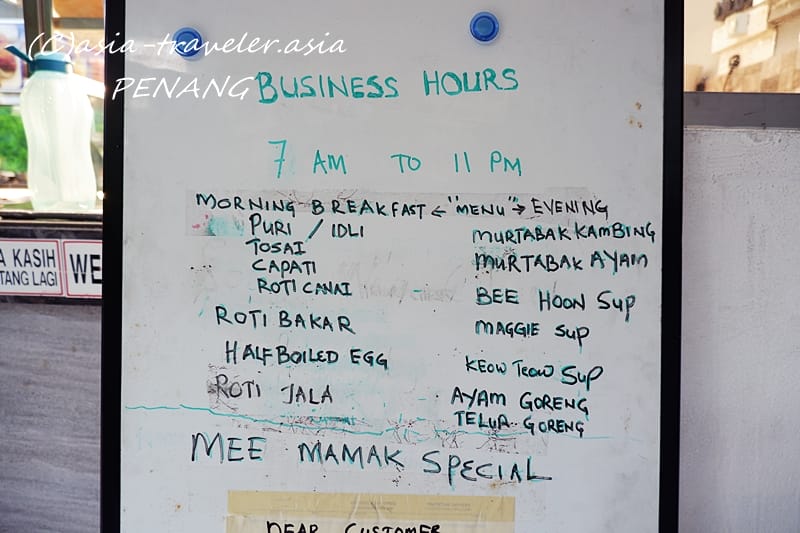 (C)asia-traveler.asia
PENANG
BUSINESS HOURS
7 AM TO 11 PM
MORNING BREAKFAST ← "MENU" → EVENING
PURI / IDLI
TOSAI
CAPATI
ROTI CANAI
ROTI BAKAR
HALF BOILED EGG
ROTI JALA
MURTABAK KAMBING
MURTABAK AYAM
BEE HOON SUP
MAGGIE SUP
KEOW TEOW SUP
AYAM GORENG
TELUR GORENG
MEE MAMAK SPECIAL
DEAR CUSTOMER
A KASIH
TANG LAGI
WE